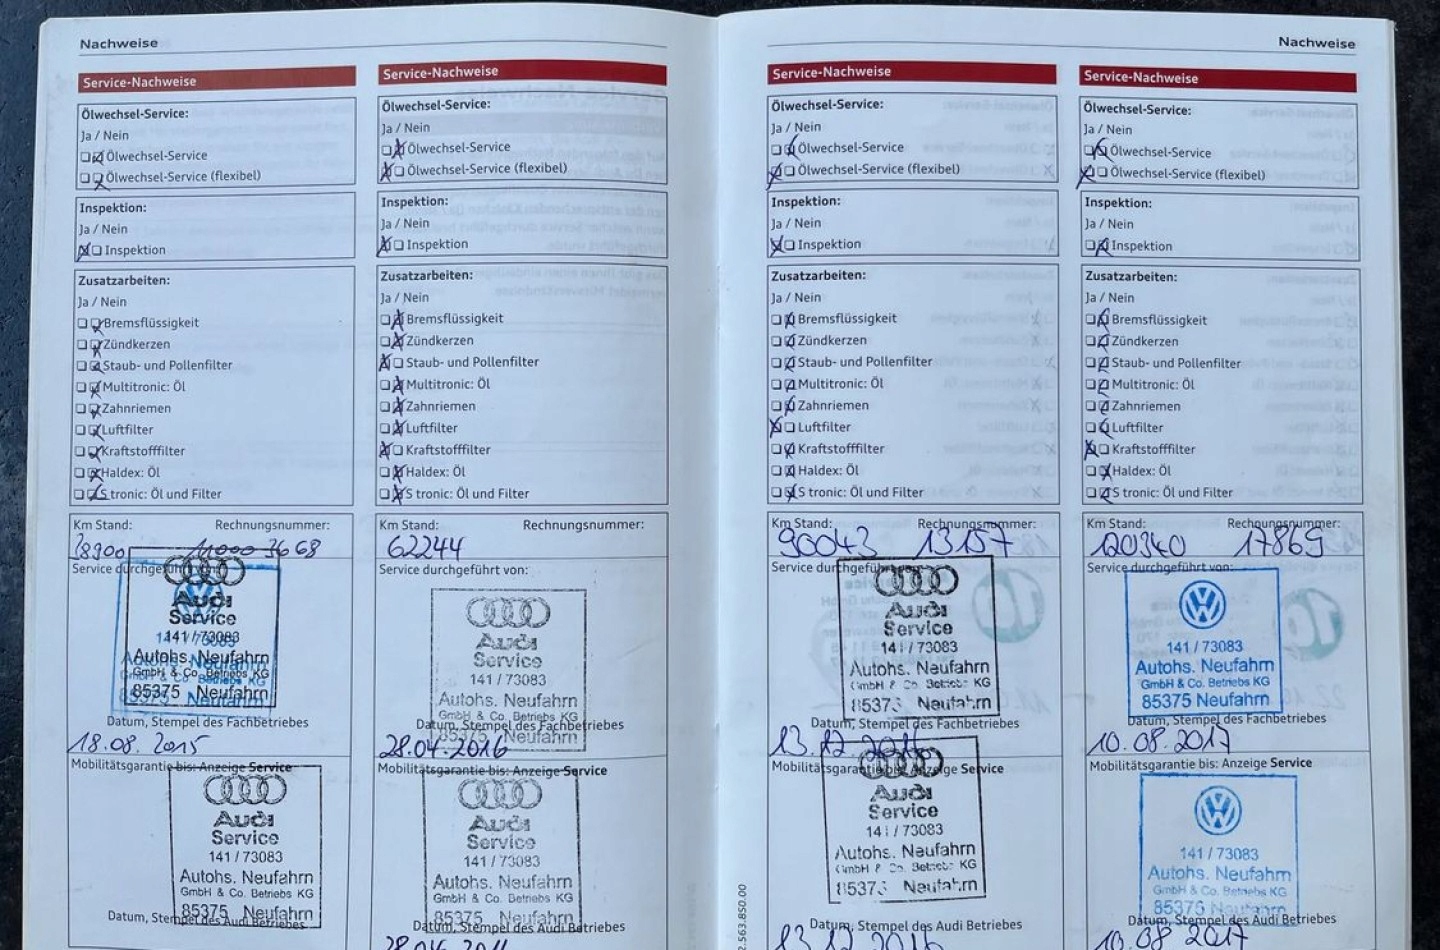 Nachweise
Service-Nachweise
Ölwechsel-Service:
Ja / Nein
Ölwechsel-Service
Ölwechsel-Service (flexibel)
Inspektion:
Ja / Nein
Inspektion
Zusatzarbeiten:
Ja / Nein
Bremsflüssigkeit
Zündkerzen
Staub- und Pollenfilter
Multitronic: Öl
Zahnriemen
Luftfilter
Kraftstofffilter
Haldex: Öl
S tronic: Öl und Filter
Km Stand: Rechnungsnummer:
3668
Service durchgeführt von:
Audi
Service
141/73083
Autohs. Neufahrn
GmbH & Co. Betriebs KG
85375 Neufahrn
Datum, Stempel des Fachbetriebes
18.08.2015
Mobilitätsgarantie bis: Anzeige Service
Audi
Service
141/73083
Autohs. Neufahrn
GmbH & Co. Betriebs KG
85375 Neufahrn
Datum, Stempel des Audi Betriebes
Service-Nachweise
Ölwechsel-Service:
Ja / Nein
Ölwechsel-Service
Ölwechsel-Service (flexibel)
Inspektion:
Ja / Nein
Inspektion
Zusatzarbeiten:
Ja / Nein
Bremsflüssigkeit
Zündkerzen
Staub- und Pollenfilter
Multitronic: Öl
Zahnriemen
Luftfilter
Kraftstofffilter
Haldex: Öl
S tronic: Öl und Filter
Km Stand: Rechnungsnummer:
62244
Service durchgeführt von:
Audi
Service
141/73083
Autohs. Neufahrn
GmbH & Co. Betriebs KG
85375 Neufahrn
Datum, Stempel des Fachbetriebes
28.04.2016
Mobilitätsgarantie bis: Anzeige Service
Audi
Service
141/73083
Autohs. Neufahrn
GmbH & Co. Betriebs KG
85375 Neufahrn
Datum, Stempel des Audi Betriebes
Nachweise
Service-Nachweise
Ölwechsel-Service:
Ja / Nein
Ölwechsel-Service
Ölwechsel-Service (flexibel)
Inspektion:
Ja / Nein
Inspektion
Zusatzarbeiten:
Ja / Nein
Bremsflüssigkeit
Zündkerzen
Staub- und Pollenfilter
Multitronic: Öl
Zahnriemen
Luftfilter
Kraftstofffilter
Haldex: Öl
S tronic: Öl und Filter
Km Stand: Rechnungsnummer:
90043 13157
Service durchgeführt von:
Audi
Service
141/73083
Autohs. Neufahrn
GmbH & Co. Betriebs KG
85375 Neufahrn
Datum, Stempel des Fachbetriebes
13.12.2016
Mobilitätsgarantie bis: Anzeige Service
Audi
Service
141/73083
Autohs. Neufahrn
GmbH & Co. Betriebs KG
85375 Neufahrn
Datum, Stempel des Audi Betriebes
13.12.2016
2.563.850.00
Service-Nachweise
Ölwechsel-Service:
Ja / Nein
Ölwechsel-Service
Ölwechsel-Service (flexibel)
Inspektion:
Ja / Nein
Inspektion
Zusatzarbeiten:
Ja / Nein
Bremsflüssigkeit
Zündkerzen
Staub- und Pollenfilter
Multitronic: Öl
Zahnriemen
Luftfilter
Kraftstofffilter
Haldex: Öl
S tronic: Öl und Filter
Km Stand: Rechnungsnummer:
120340 17869
Service durchgeführt von:
141/73083
Autohs. Neufahrn
GmbH & Co. Betriebs KG
85375 Neufahrn
Datum, Stempel des Fachbetriebes
10.08.2017
Mobilitätsgarantie bis: Anzeige Service
141/73083
Autohs. Neufahrn
GmbH & Co. Betriebs KG
85375 Neufahrn
Datum, Stempel des Audi Betriebes
10.08.2017